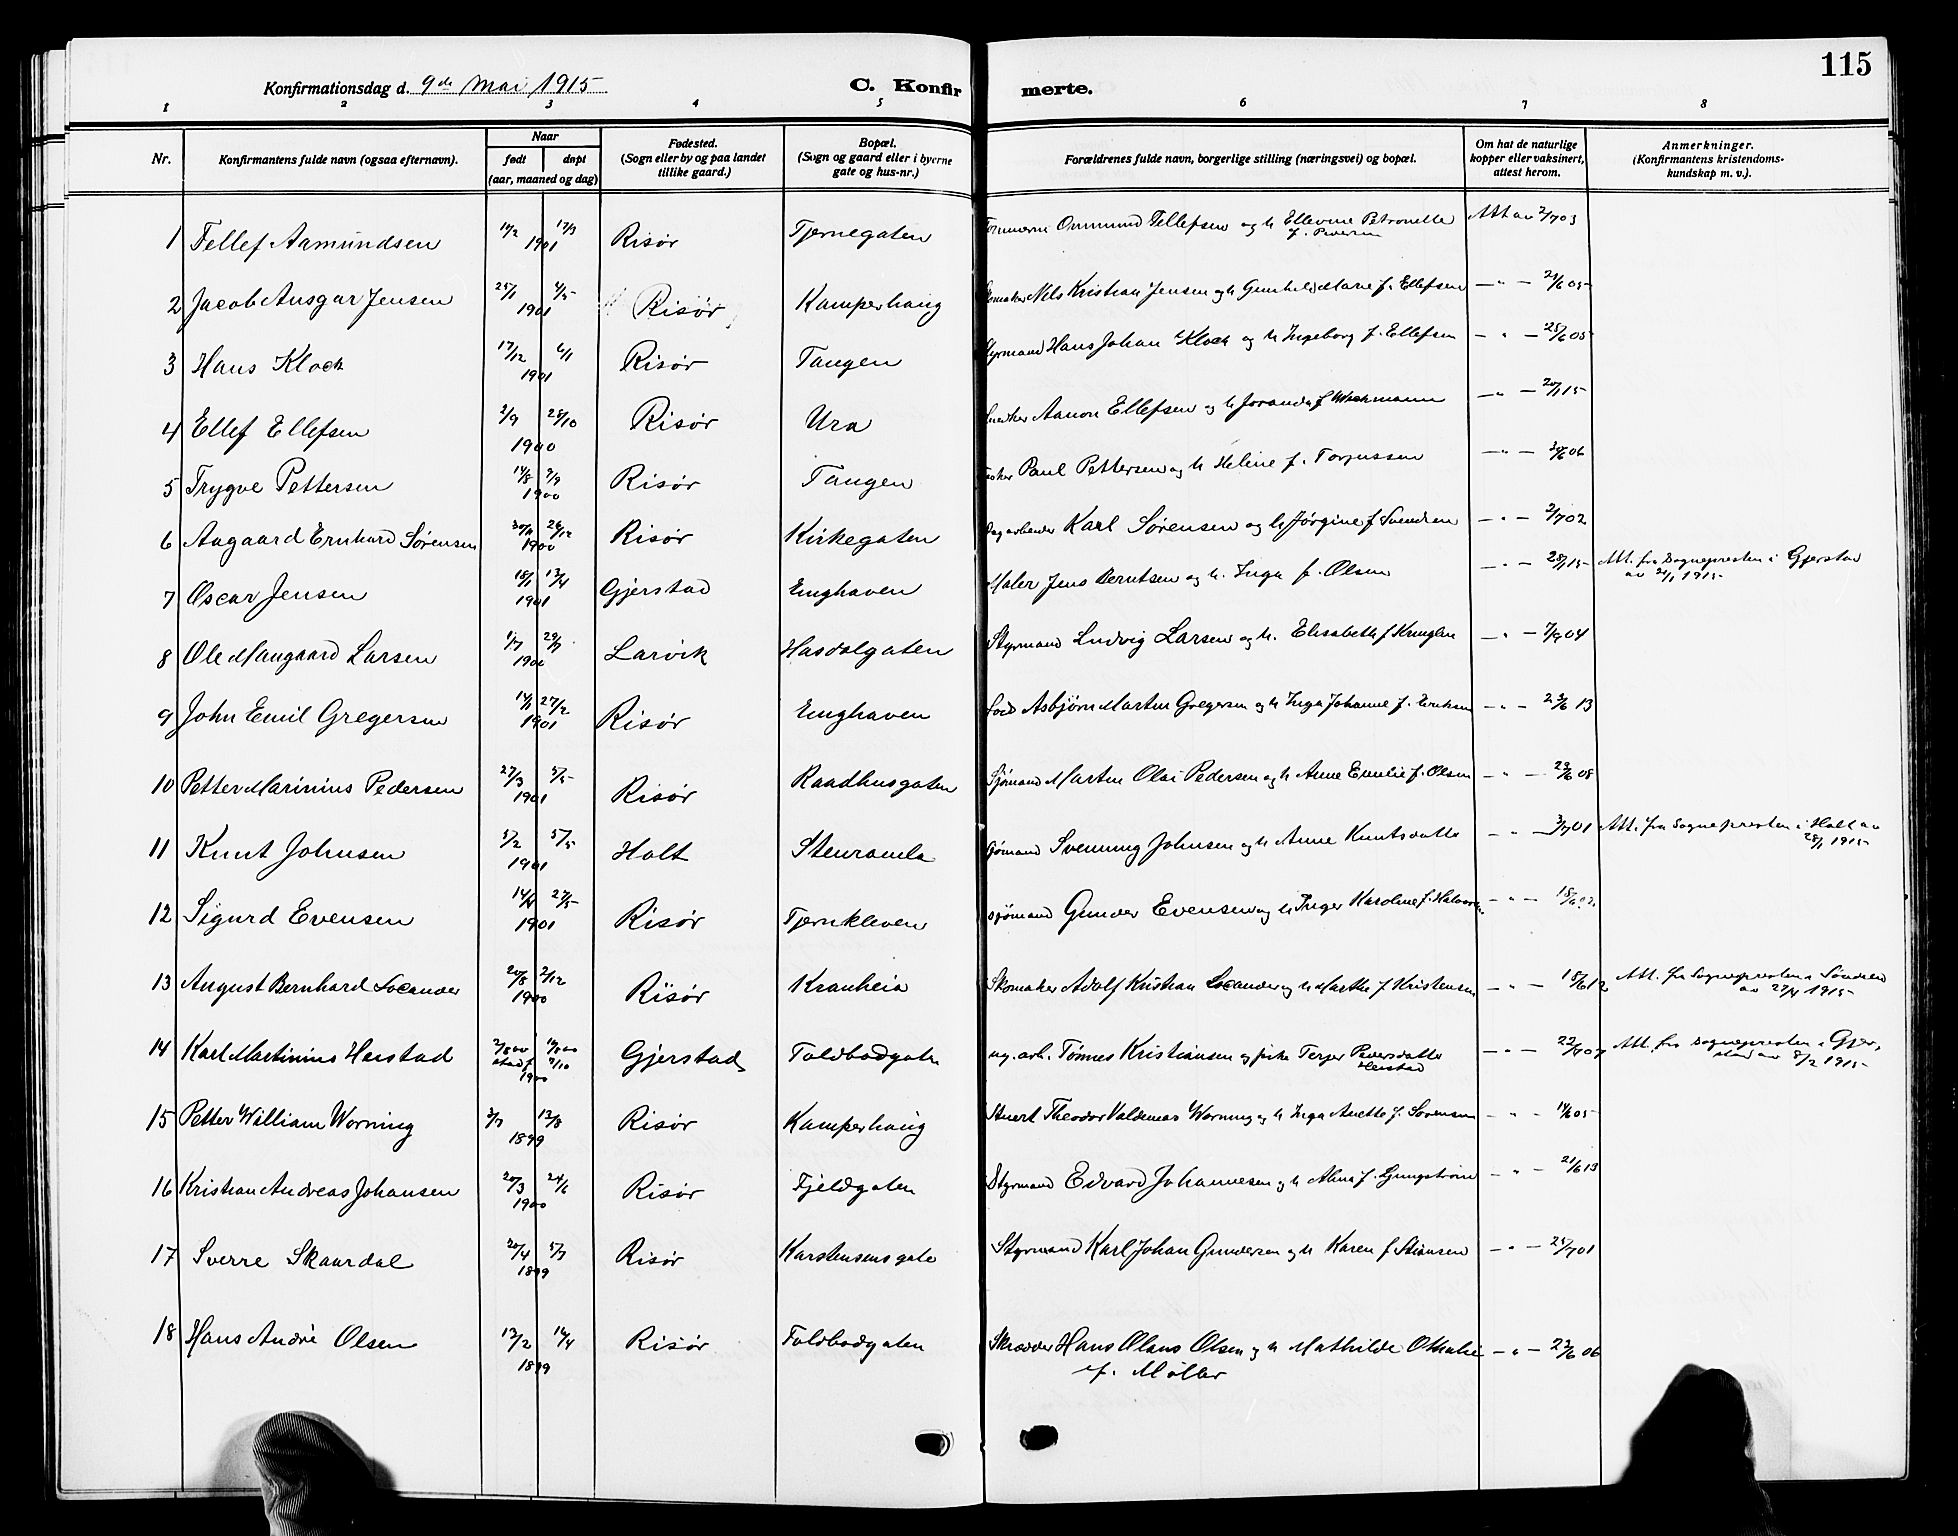 115
Konfirmationsdag d. 9de Mai 1915
C. Konfirmerte.
1 2 3 4 5 6 7 8
Nr.
Konfirmantens fulde navn (ogsaa efternavn).
Naar
født døpt
(aar, maaned og dag)
Fødested.
(Sogn eller by og paa landet
tillike gaard.)
Bopæl.
(Sogn og gaard eller i byerne
gate og hus-nr.)
Forældrenes fulde navn, borgerlige stilling (næringsvei) og bopæl.
Om hat de naturlige
kopper eller vaksinert,
attest herom.
Anmerkninger.
(Konfirmantens kristendoms-
kundskap m. v.).
1 Tellef Aamundsen 1901 Risør Tjernegaten Ommund Tellefsen og h. Ellevine Petronelle Att av 2/7 03
2 Jacob Ansgar Jensen 25/1 4/5 1901 Risør Kamperhaug Nils Kristian Jensen og h. Gunhild Marie f. Ellefsen
3 Hans Klock 17/12 6/1 1901 Risør Tangen Styrmand Hans Johan Klock og h. Ingeborg f. Ellefsen – " – 25/6 05
4 Ellef Ellefsen 2/9 28/10 1900 Risør Ura Aanon Ellefsen og h. Joranda f. Wichmann – " – 20/1 15
5 Trygve Pettersen 14/8 9/9 1900 Risør Tangen Paul Pettersen og h. Heline f. Torjussen – " – 06
6 Aagaard Ernhard Sørensen 30/11 26/12 1900 Risør Kirkegaten Dagarbeider Karl Sørensen og h. Jørgine f. Svendsen – " – 2/7 02
7 Oscar Jensen 18/1 13/4 1901 Gjerstad Enghaven Maler Jens Berntsen og h. Inga f. Olsen – " – 28/1 15 Att. fra Sognepresten i Gjerstad
av 21/1 1915
8 Ole Maugaard Larsen 1/7 29/7 1900 Larvik Hasdalgaten Styrmand Ludvig Larsen og h. Elisabeth f. – " – 7/9 04
9 John Emil Gregersen 14/1 27/2 1901 Risør Enghaven Lods Asbjørn Martin Gregersen og h. Inga Johanne f. Eriksen – " – 23/6 13
10 Petter Marinius Pedersen 27/3 5/5 1901 Risør Raadhusgaten Sjømand Martin Olai Pedersen og h. Anne Emilie f. Olsen – " – 23/6 08
11 Knut Johnsen 5/2 5/5 1901 Holt Stenramla Sjømand Svenning Johnsen og h. Anne Knutsdatter – " – 3/7 01 Att. fra Sognepresten i Holt av
28/1 1915
12 Sigurd Evensen 14/4 27/5 1901 Risør Tjernkleven Sjømand Gunder Evensen og h. Inger Karoline f. Halvorsen – " – 18/6 02
13 August Bernhard Locander 20/8 2/12 1900 Risør Kranheia Skomaker Adolf Kristian Locander og h. Marthe f. Kristensen – " – 18/6 12 Att. fra Sognepresten i Søndeled
av 27/4 1915
14 Karl Martinius Heistad 1900 Gjerstad Toldbodgaten Tønnes Kristiansen og pike Terjer Pedersdatter – " – 22/9 07 Att. fra sognepresten i Gjer-
Heistad stad av 8/2 1915
15 Petter William Worning 3/7 13/8 1899 Risør Kamperhaug Stuert Theodor Valdemar Worning og h. Inga Anette f. Sørensen – " – 05
16 Kristian Andreas Johansen 20/3 24/6 1900 Risør Fjeldgaten Styrmand Edvard Johannesen og h. Alma f. Ljungstrøm – " – 21/6 13
17 Sverre Skaardal 20/4 5/7 1899 Risør Karstensens gate Styrmand Karl Johan Gundersen og h. Karen f. Stiansen – " – 25/7 01
18 Hans André Olsen 13/2 16/4 1899 Risør Toldbodgaten Skrædder Hans Olaus Olsen og h. Mathilde Othalie – " – 23/6 06
f. Møller